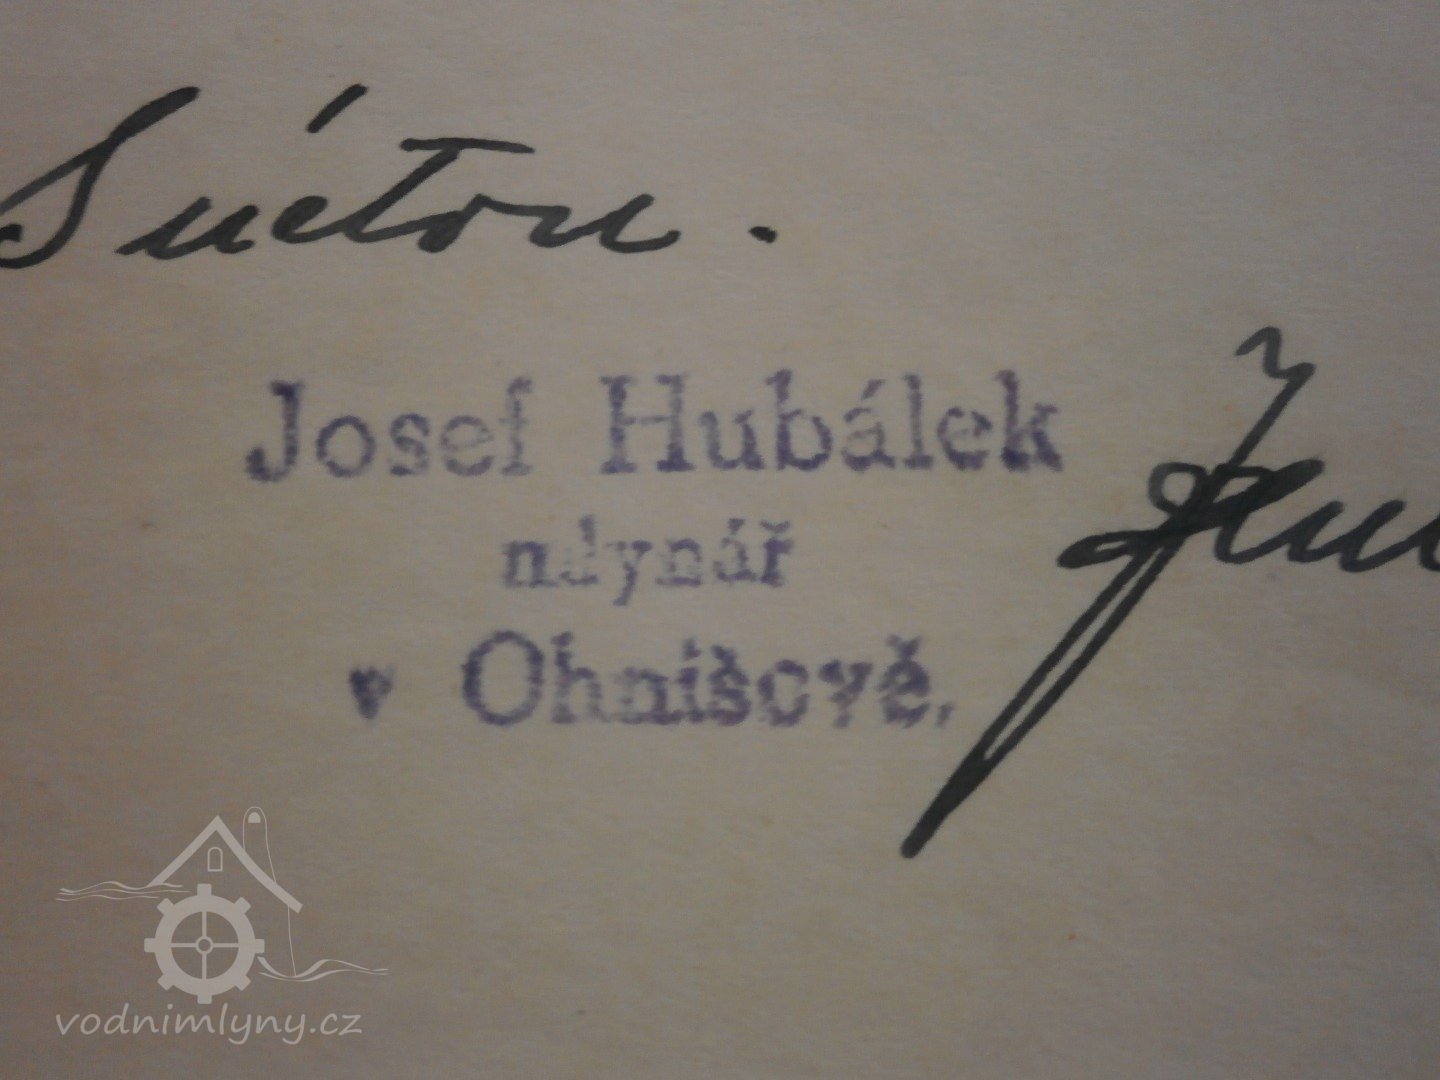 S úctou.
Josef Hubálek
mlynář
v Ohnišově,
vodnimlyny.cz